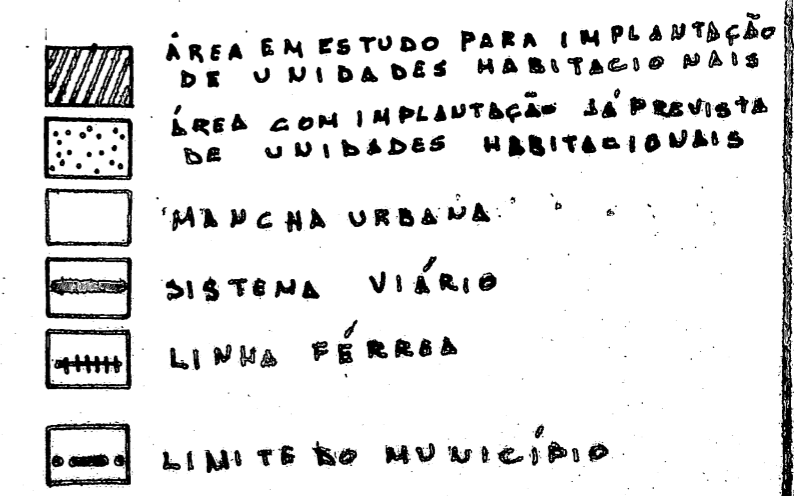 ÁREA EM ESTUDO PARA IMPLANTAÇÃO
DE UNIDADES HABITACIONAIS
ÁREA COM IMPLANTAÇÃO JÁ PREVISTA
DE UNIDADES HABITACIONAIS
MANCHA URBANA
SISTEMA VIÁRIO
LINHA FÉRREA
LIMITE DO MUNICÍPIO